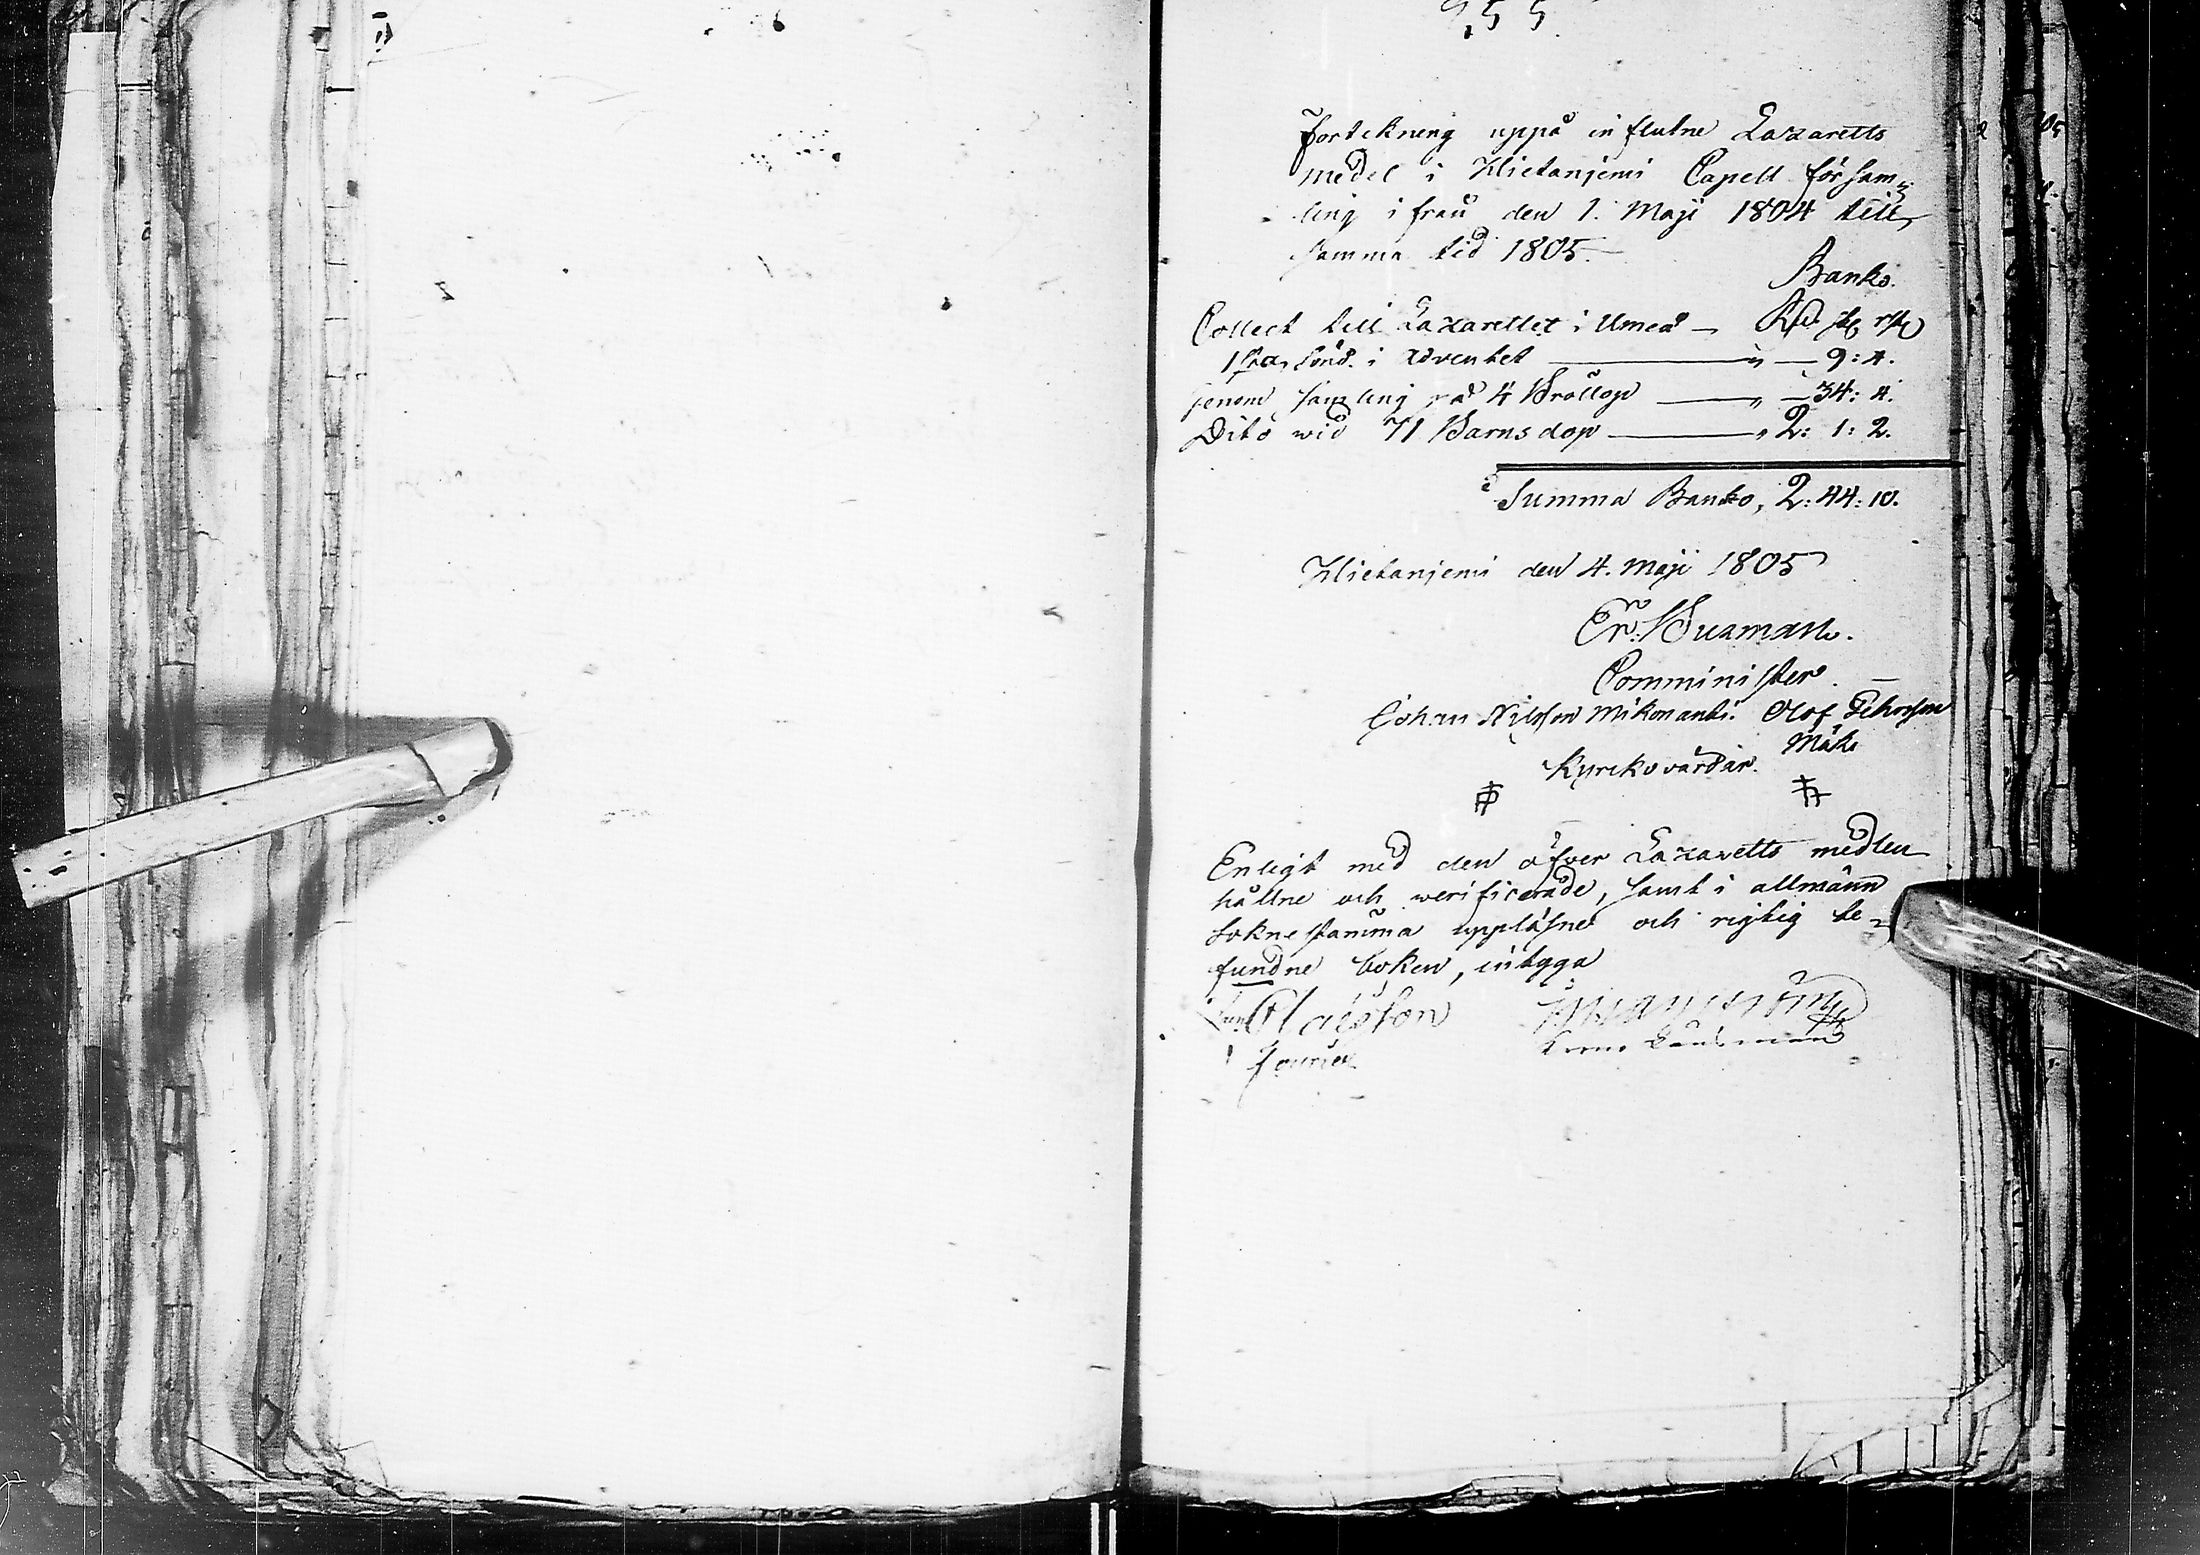 255
Förtekning uppå influtne Lazaretts
medel i Hietanjemi Capell församling
ifrån den 1. Maji 1804 till
samma tid 1805.
Banko.
Collect till Lazarettet i Umeå — Rd. sk rst
1sta Sönd. i Adventet — „ — 9: 4.
genom samling på 4 Bröllop — „ — 34: 4.
Dito wid 71 Barnsdop — „ 2: 1: 2.
Summa Banko, 2: 44: 10.
Hietanjemi den 4. Maji 1805
Er: Burman.
Comminister.
Johan Nilsson Mikonanti. Olof
Mäki
Kyrckovärdar.
Enligt med den öfver Lazaretts medlen
hållne och verificerade, samt i allmänn
Soknestämma uppläsne och rigtig be-
fundne boken, intyga
Olaisson
Fourier Länsman